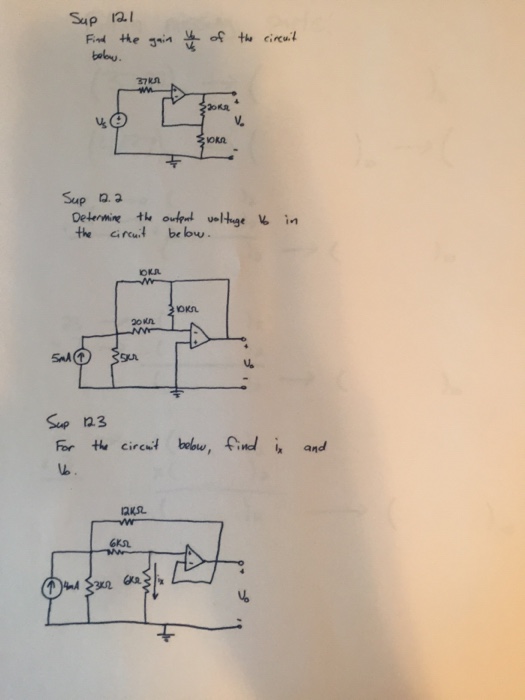 Sup 12.1
Find the gain Vo/Vs of the circuit
below.
37KΩ
20KΩ
Vs
Vo
10KΩ
Sup 12.2
Determine the output voltage Vo in
the circuit below.
10KΩ
10KΩ
20KΩ
5mA
5KΩ
Vo
Sup 12.3
For the circuit below, find ix and
Vo.
12KΩ
6KΩ
4mA
3KΩ
6KΩ
ix
Vo